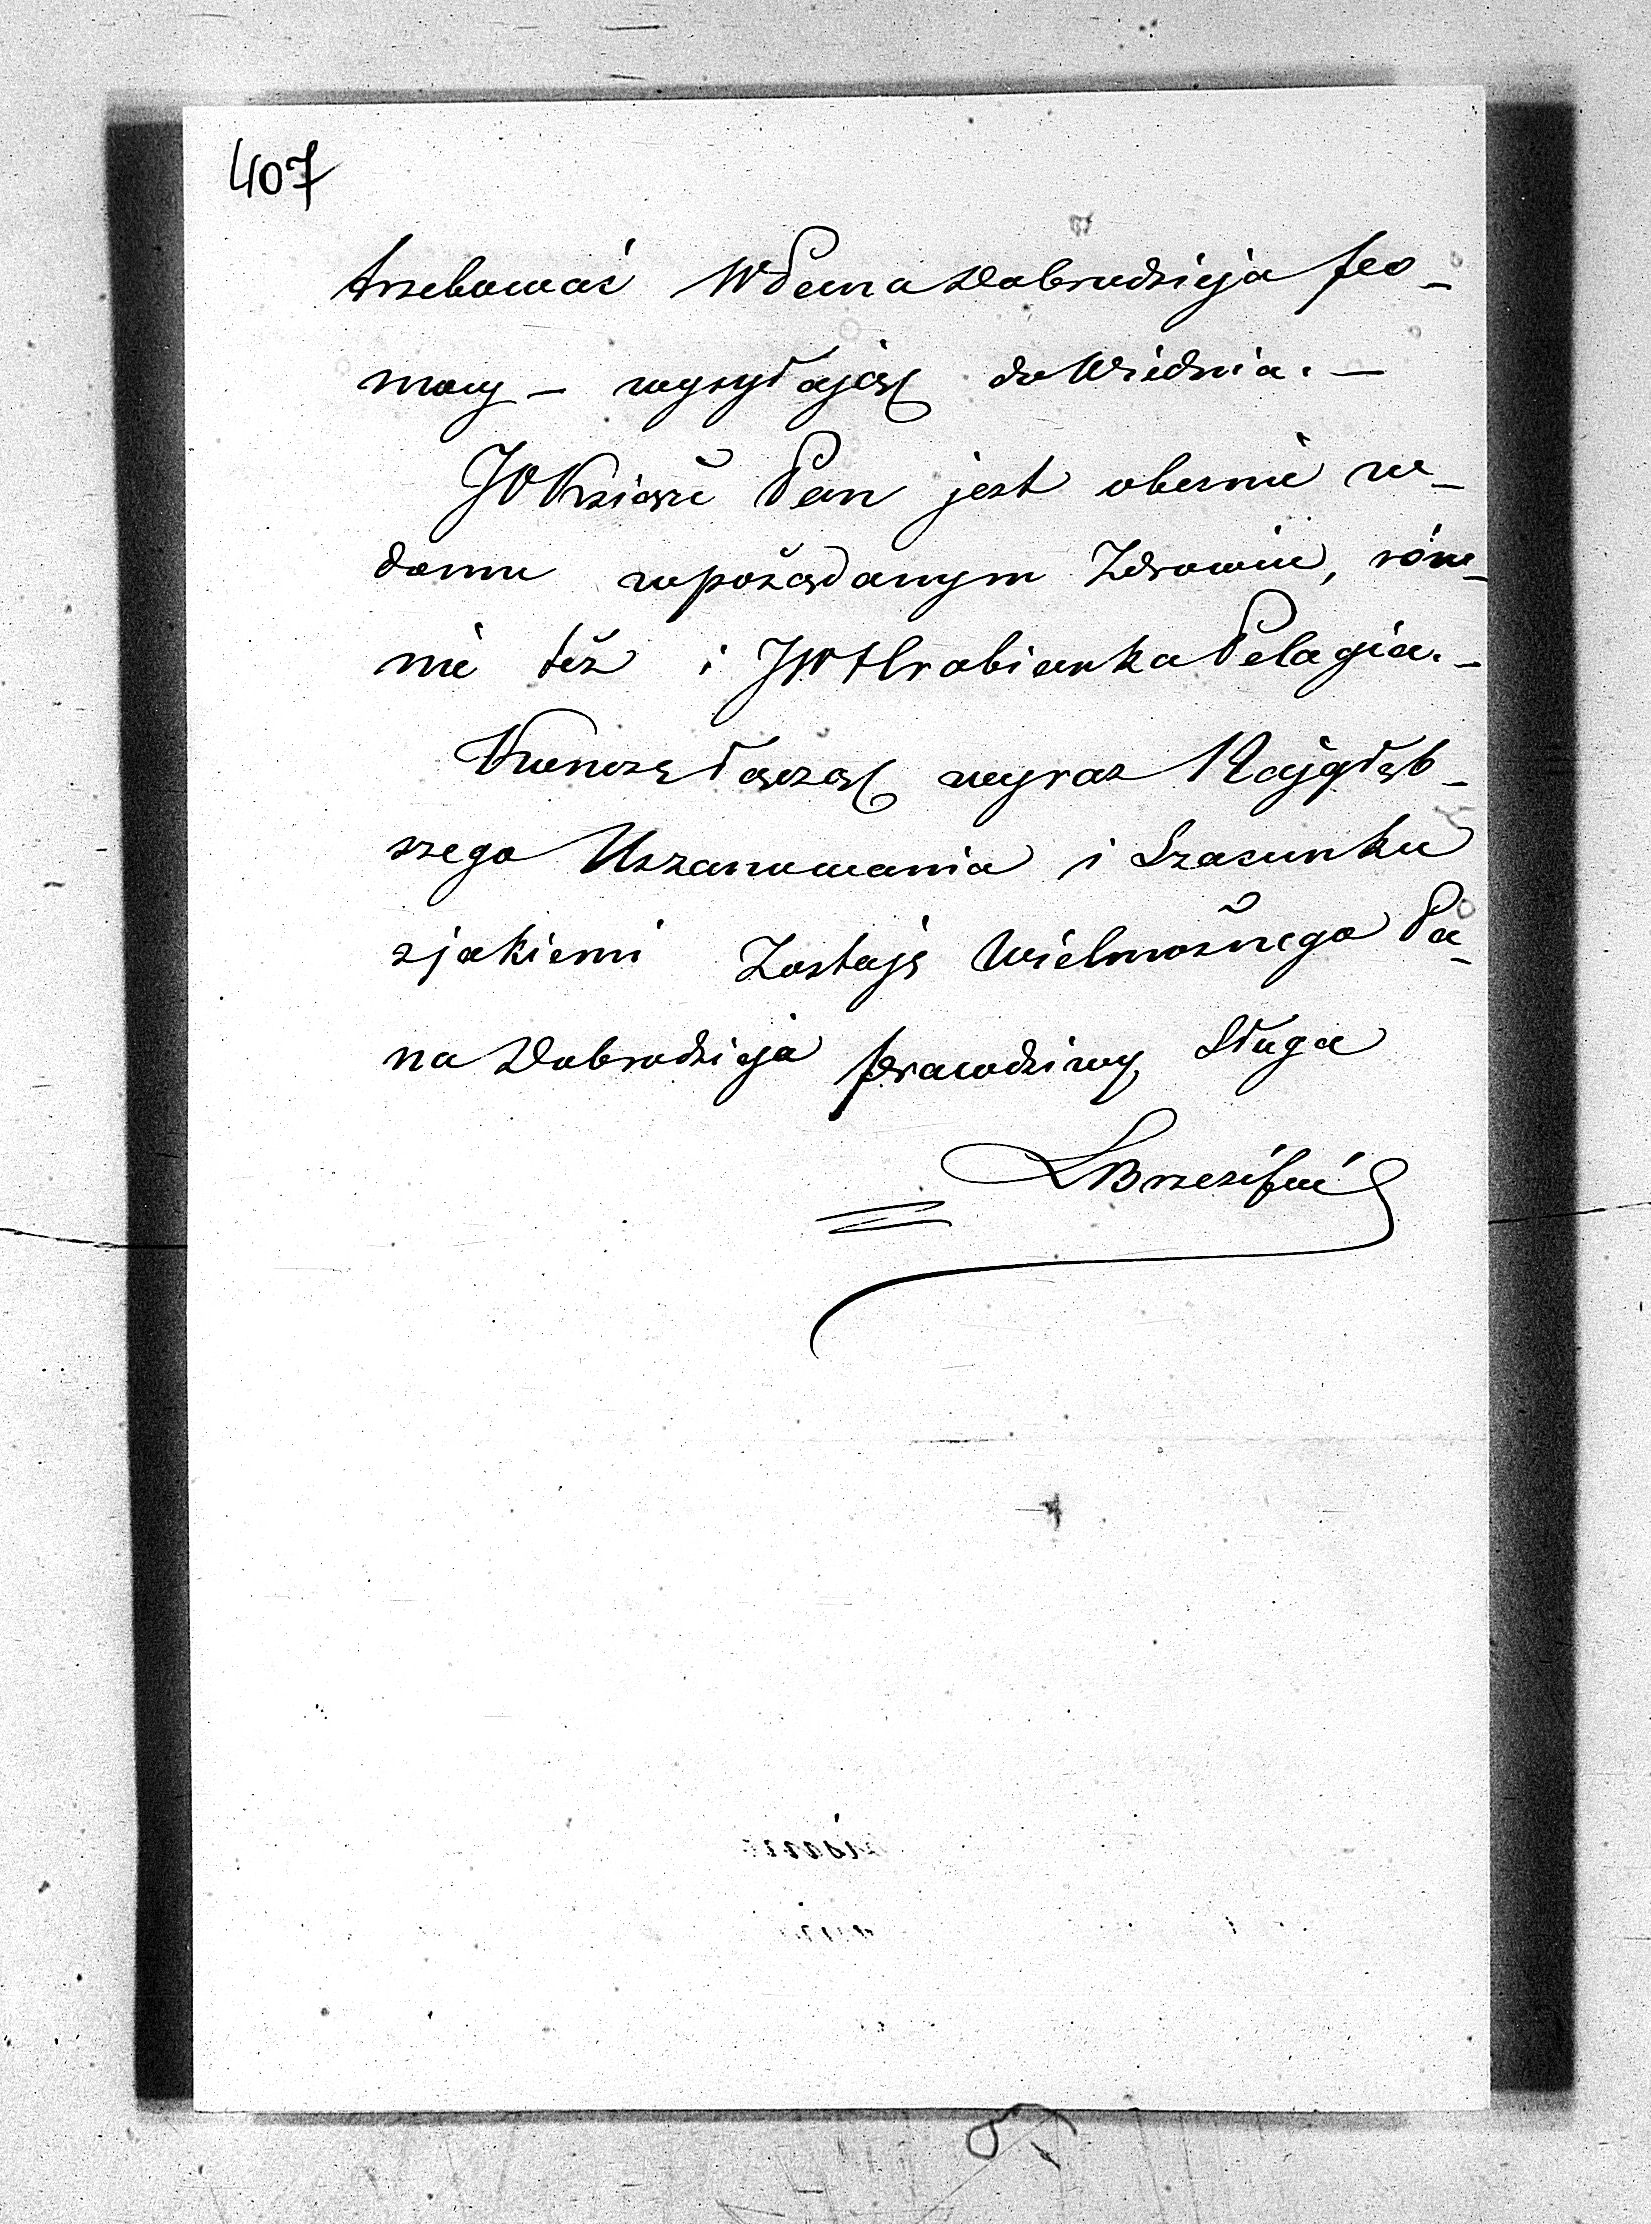 407
trzebować WPana Dobrodzieja po-
mocy - wysyłając do Wiednia. -
JO Książe Pan jest obecnie w-
domu w pożądanym Zdrowiu, rów-
nie też i JW Hrabianka Pelagia. -
Kończę łącząc wyraz Najgłęb-
szego Uszanowania i Szacunku
z jakiemi Zostaję Wielmożnego Pa-
na Dobrodzieja prawdziwy Sługa